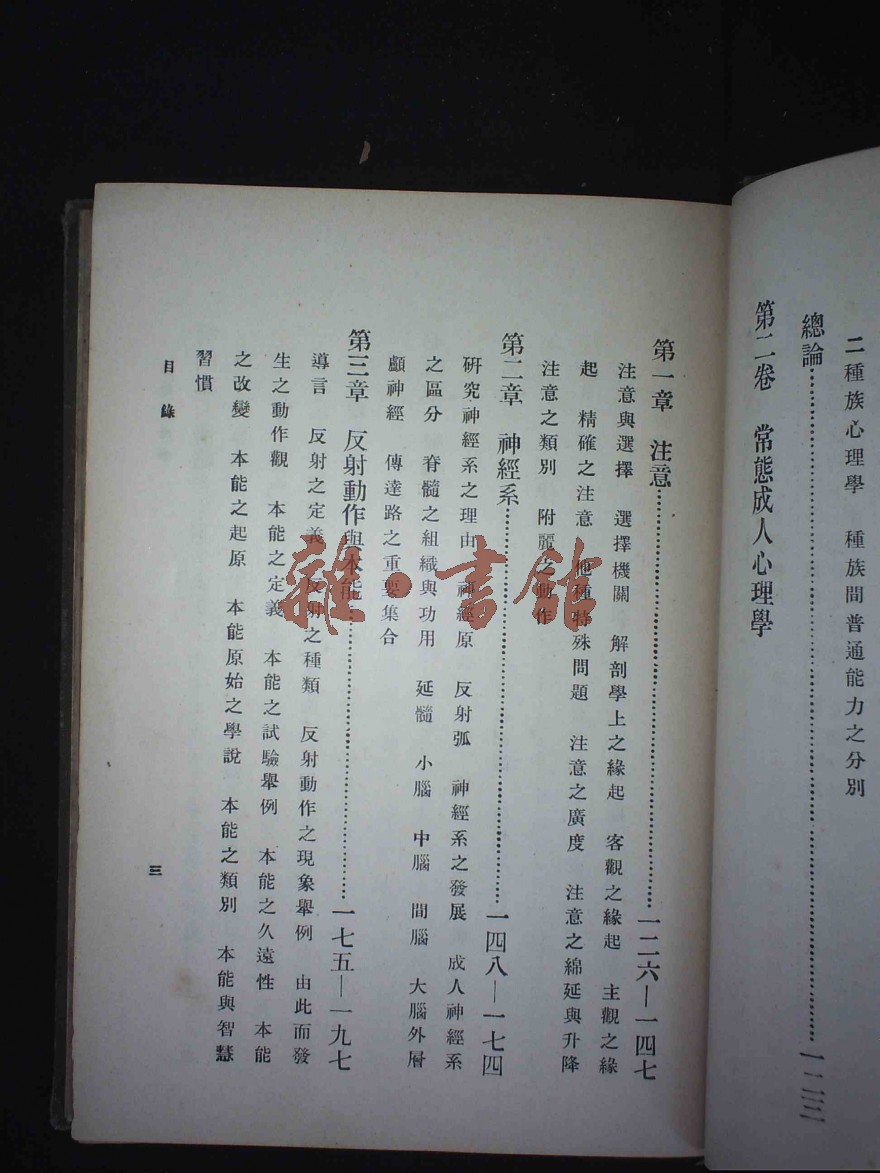 二種族心理學　種族間普通能力之分別
第二卷　常態成人心理學
總論……一二三
第一章　注意……一二六—一四七
注意與選擇　選擇機關　解剖學上之緣起　客觀之緣起　主觀之緣
起　精確之注意　他種特殊問題　注意之廣度　注意之綿延與升降
注意之類別　附麗之動作
第二章　神經系……一四八—一七四
研究神經系之理由　神經原　反射弧　神經系之發展　成人神經系
之區分　脊髓之組織與功用　延髓　小腦　中腦　間腦　大腦外層
顱神經　傳達路之重要集合
第三章　反射動作與本能……一七五—一九七
導言　反射之定義　反射之種類　反射動作之現象舉例　由此而發
生之動作觀　本能之定義　本能之試驗舉例　本能之久遠性　本能
之改變　本能之起原　本能原始之學說　本能之類別　本能與智慧
習慣
目錄
三
雜·書館